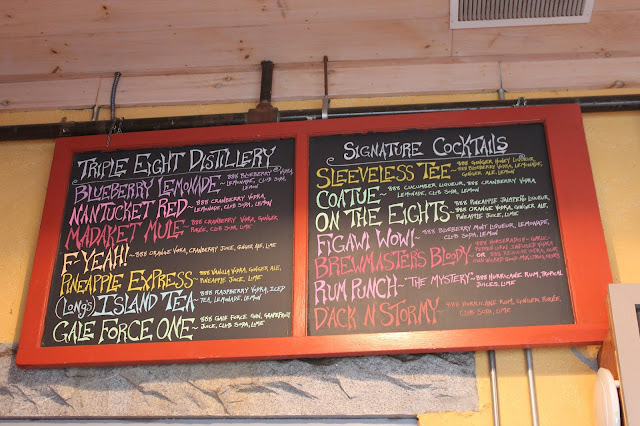 TRIPLE EIGHT DISTILLERY
BLUEBERRY LEMONADE~ 888 BLUEBERRY VODKA
LEMONADE, CLUB SODA,
LEMON
NANTUCKET RED~ 888 CRANBERRY VODKA
LEMONADE, CLUB SODA, LEMON
MADAKET MULE~ 888 CRANBERRY VODKA, GINGER
PURÉE, CLUB SODA, LIME
F YEAH!~ 888 ORANGE VODKA, CRANBERRY JUICE, GINGER ALE, LIME
PINEAPPLE EXPRESS~ 888 VANILLA VODKA, GINGER ALE,
PINEAPPLE JUICE, LIME
(LONG'S) ISLAND TEA~ 888 RASPBERRY VODKA, ICED
TEA, LEMONADE, LEMON
GALE FORCE ONE~ 888 GALE FORCE GIN, GRAPEFRUIT
JUICE, CLUB SODA, LIME
SIGNATURE COCKTAILS
SLEEVELESS TEE~ 888 GINGER HONEY LIQUEUR,
888 BLUEBERRY VODKA, LEMONADE,
GINGER ALE, LEMON
COATUE~ 888 CUCUMBER LIQUEUR, 888 CRANBERRY VODKA,
LEMONADE, CLUB SODA, LEMON
ON THE EIGHTS~ 888 PINEAPPLE JALAPEÑO LIQUEUR,
888 ORANGE VODKA, GINGER ALE,
PINEAPPLE JUICE, LIME
FIGAWI WOWI~ 888 BLUEBERRY MINT LIQUEUR, LEMONADE,
CLUB SODA, LEMON
BREWMASTER'S BLOODY~ OR
RUM PUNCH~ THE MYSTERY~ 888 HURRICANE RUM, TROPICAL
JUICES, LIME
DACK N STORMY~ 888 HURRICANE RUM, GINGER PURÉE,
CLUB SODA, LIME